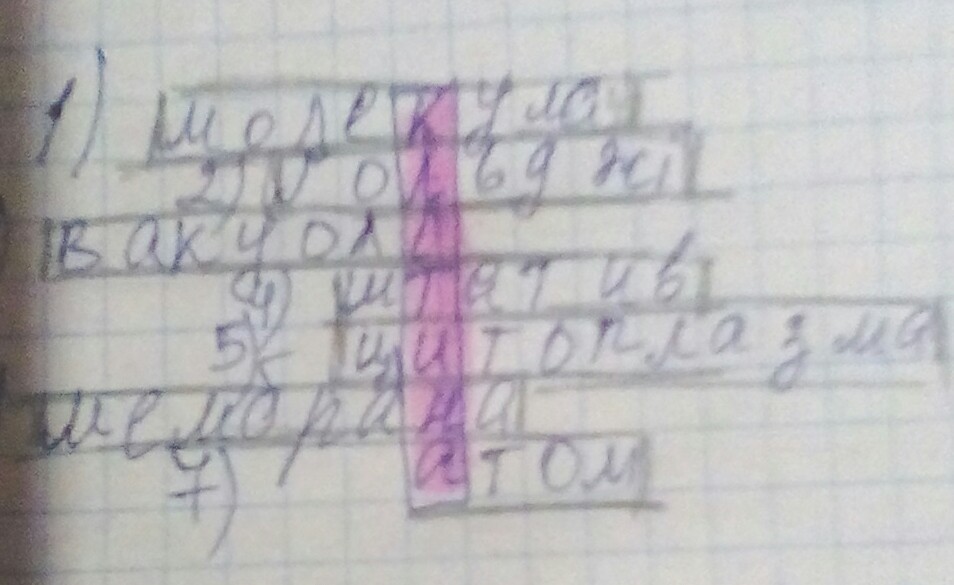 1) молекула
2) вольвджі
вакуолі
4) штатив
5) цитоплазма
мембрана
7) атом